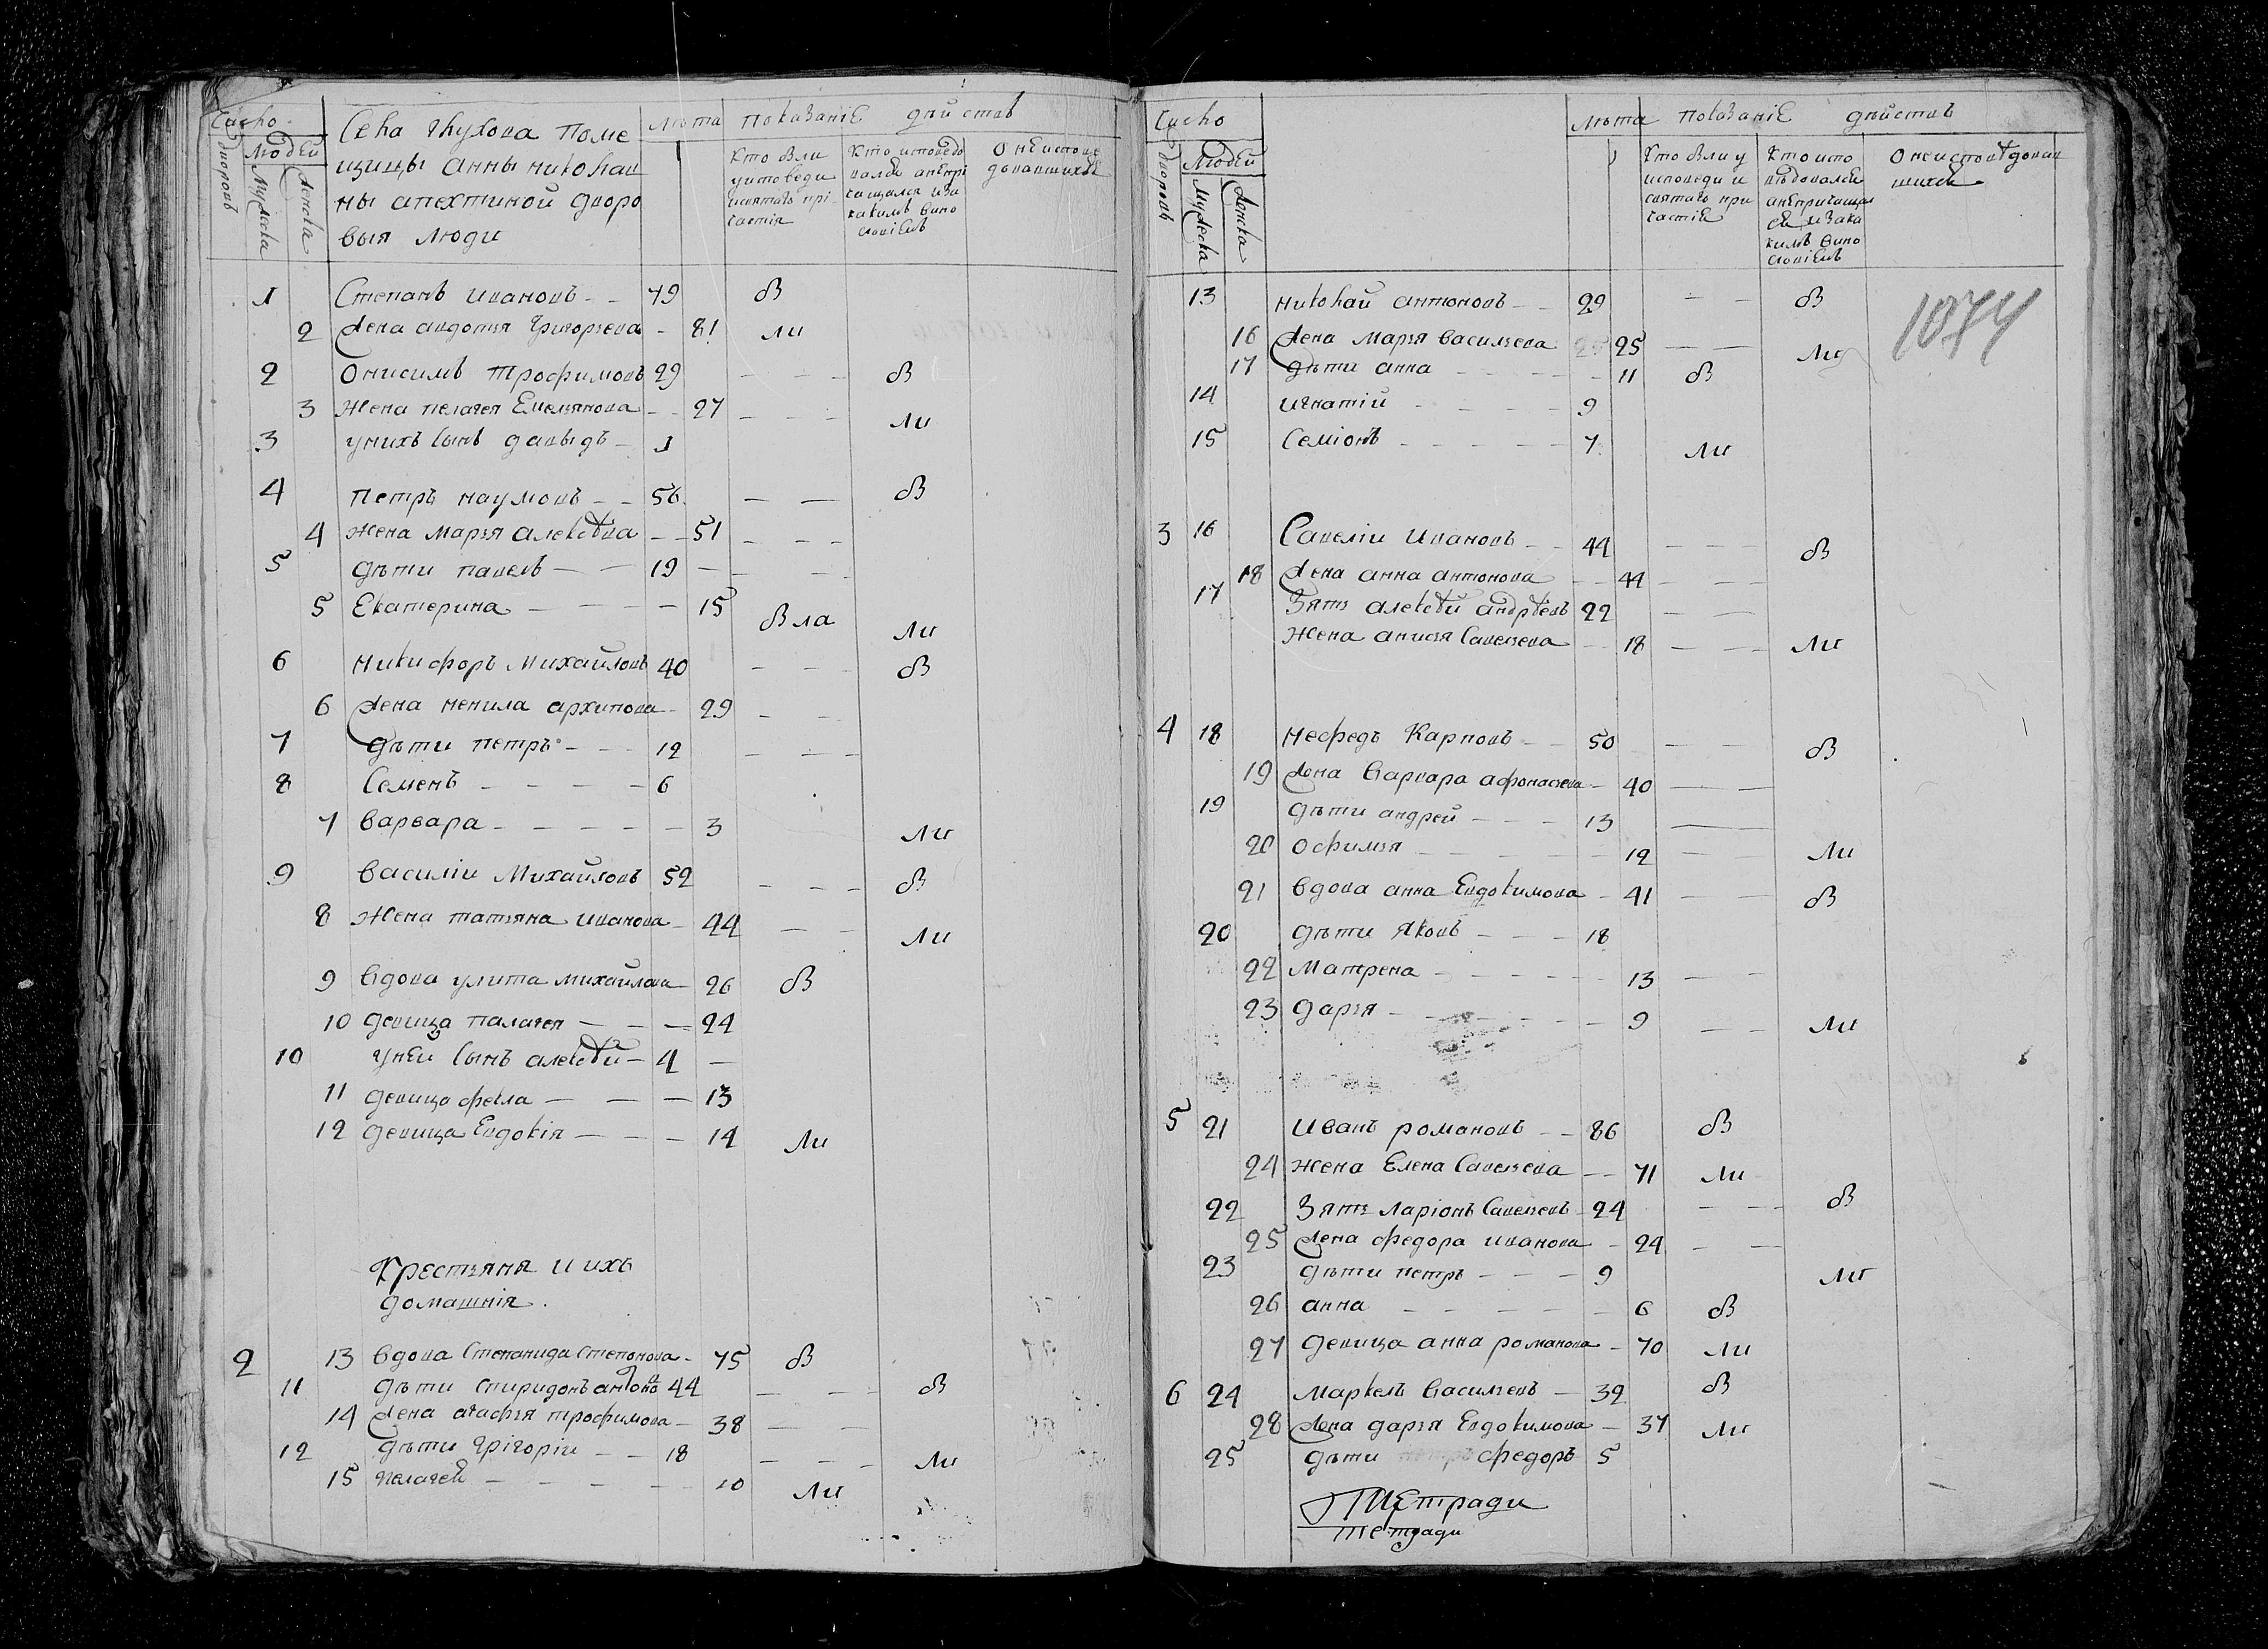 Число
дворовъ
Людей
Мужеска
Женска
Села Глухова Поме
щицы Анны николав
ны апехтиной дворо
выя люди
Лѣта показаніе дѣйствъ
Кто были у исповеди и святаго прічастія
Кто исповедовался а не причащался и за какимъ винословіемъ
О неисповедовавшихся
1 Степанъ ивановъ 79 Б
2 Жена авдотья Григорьева 81 ли
2 Онисимъ трофимовъ 29 Б
3 Жена пелагея Емельянова 27 ли
3 у нихъ сынъ давыдъ 1
4 петръ наумовъ 56 Б
4 Жена марья алексѣва 51
5 дѣти павелъ 19
5 Екатерина 15 Была ли
6 никифоръ михайловъ 40 Б
6 Жена ненила архипова 29
7 дѣти петръ 12
8 Семенъ 6
7 варвара 3 ли
9 василіи Михайловъ 52 Б
8 Жена татьяна иванова 44 ли
9 вдова улита михайлова 26 Б
10 девица палагея 24
10 у неи сынъ алексѣй 4
11 девица фекла 13
12 девица Евдокія 14 ли
Крестьяня и ихъ
домашнія
2 13 вдова Степанида степонова 75 Б
11 дѣти спиридонъ антоновъ 44 Б
14 Жена агафья трофимова 38
12 дѣти грігоріи 18 ли
15 пелагея 10 ли
Число
дворовъ
Людей
Мужеска
Женска
Лѣта показаніе дѣйствъ
Кто были у исповеди и святаго причастія
Кто исповѣдовался а не причащался и за какимъ винословіемъ
О неисповѣдовавшихся
1074
13 николай антоновъ 29 Б
16 Жена марья васильева 25 ли
17 дѣти анна 11 Б
14 игнатій 9
15 Семіонъ 7 ли
3 16 Савеліи Ивановъ 44 Б
18 Жена анна антонова 44
17 Зять алексѣй андрѣевъ 22
Жена анисья Савельева 18 ли
4 18 нефедъ Карповъ 50 Б
19 Жена варвара афонасьева 40
19 дѣти андрей 13
20 офимья 12 ли
21 вдова анна Евдокимова 41 Б
20 дѣти Яковъ 18
22 Матрена 13
23 дарья 9 ли
5 21 Иванъ романовъ 86 Б
24 жена Елена Савельева 71 ли
22 Зять ларіонъ Савельевъ 24 Б
25 Жена федора иванова 24
23 дѣти петръ 9 ли
26 анна 6 Б
27 девица анна романова 70 ли
6 24 маркелъ васильевъ 39 Б
28 Жена дарья Евдокимова 37 ли
25 дѣти федоръ 5
Тетради
тетради